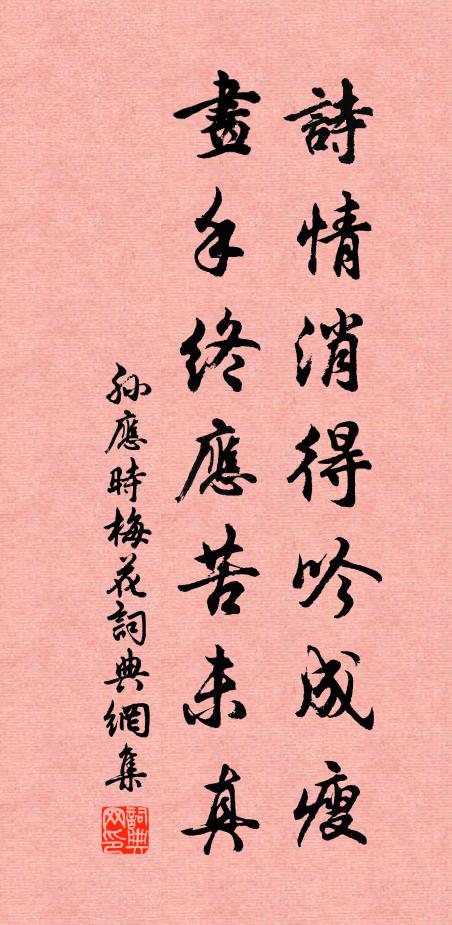 詩情消得吟成瘦
畫手終應苦未真
孫應時梅花詞典網集
詞典网印